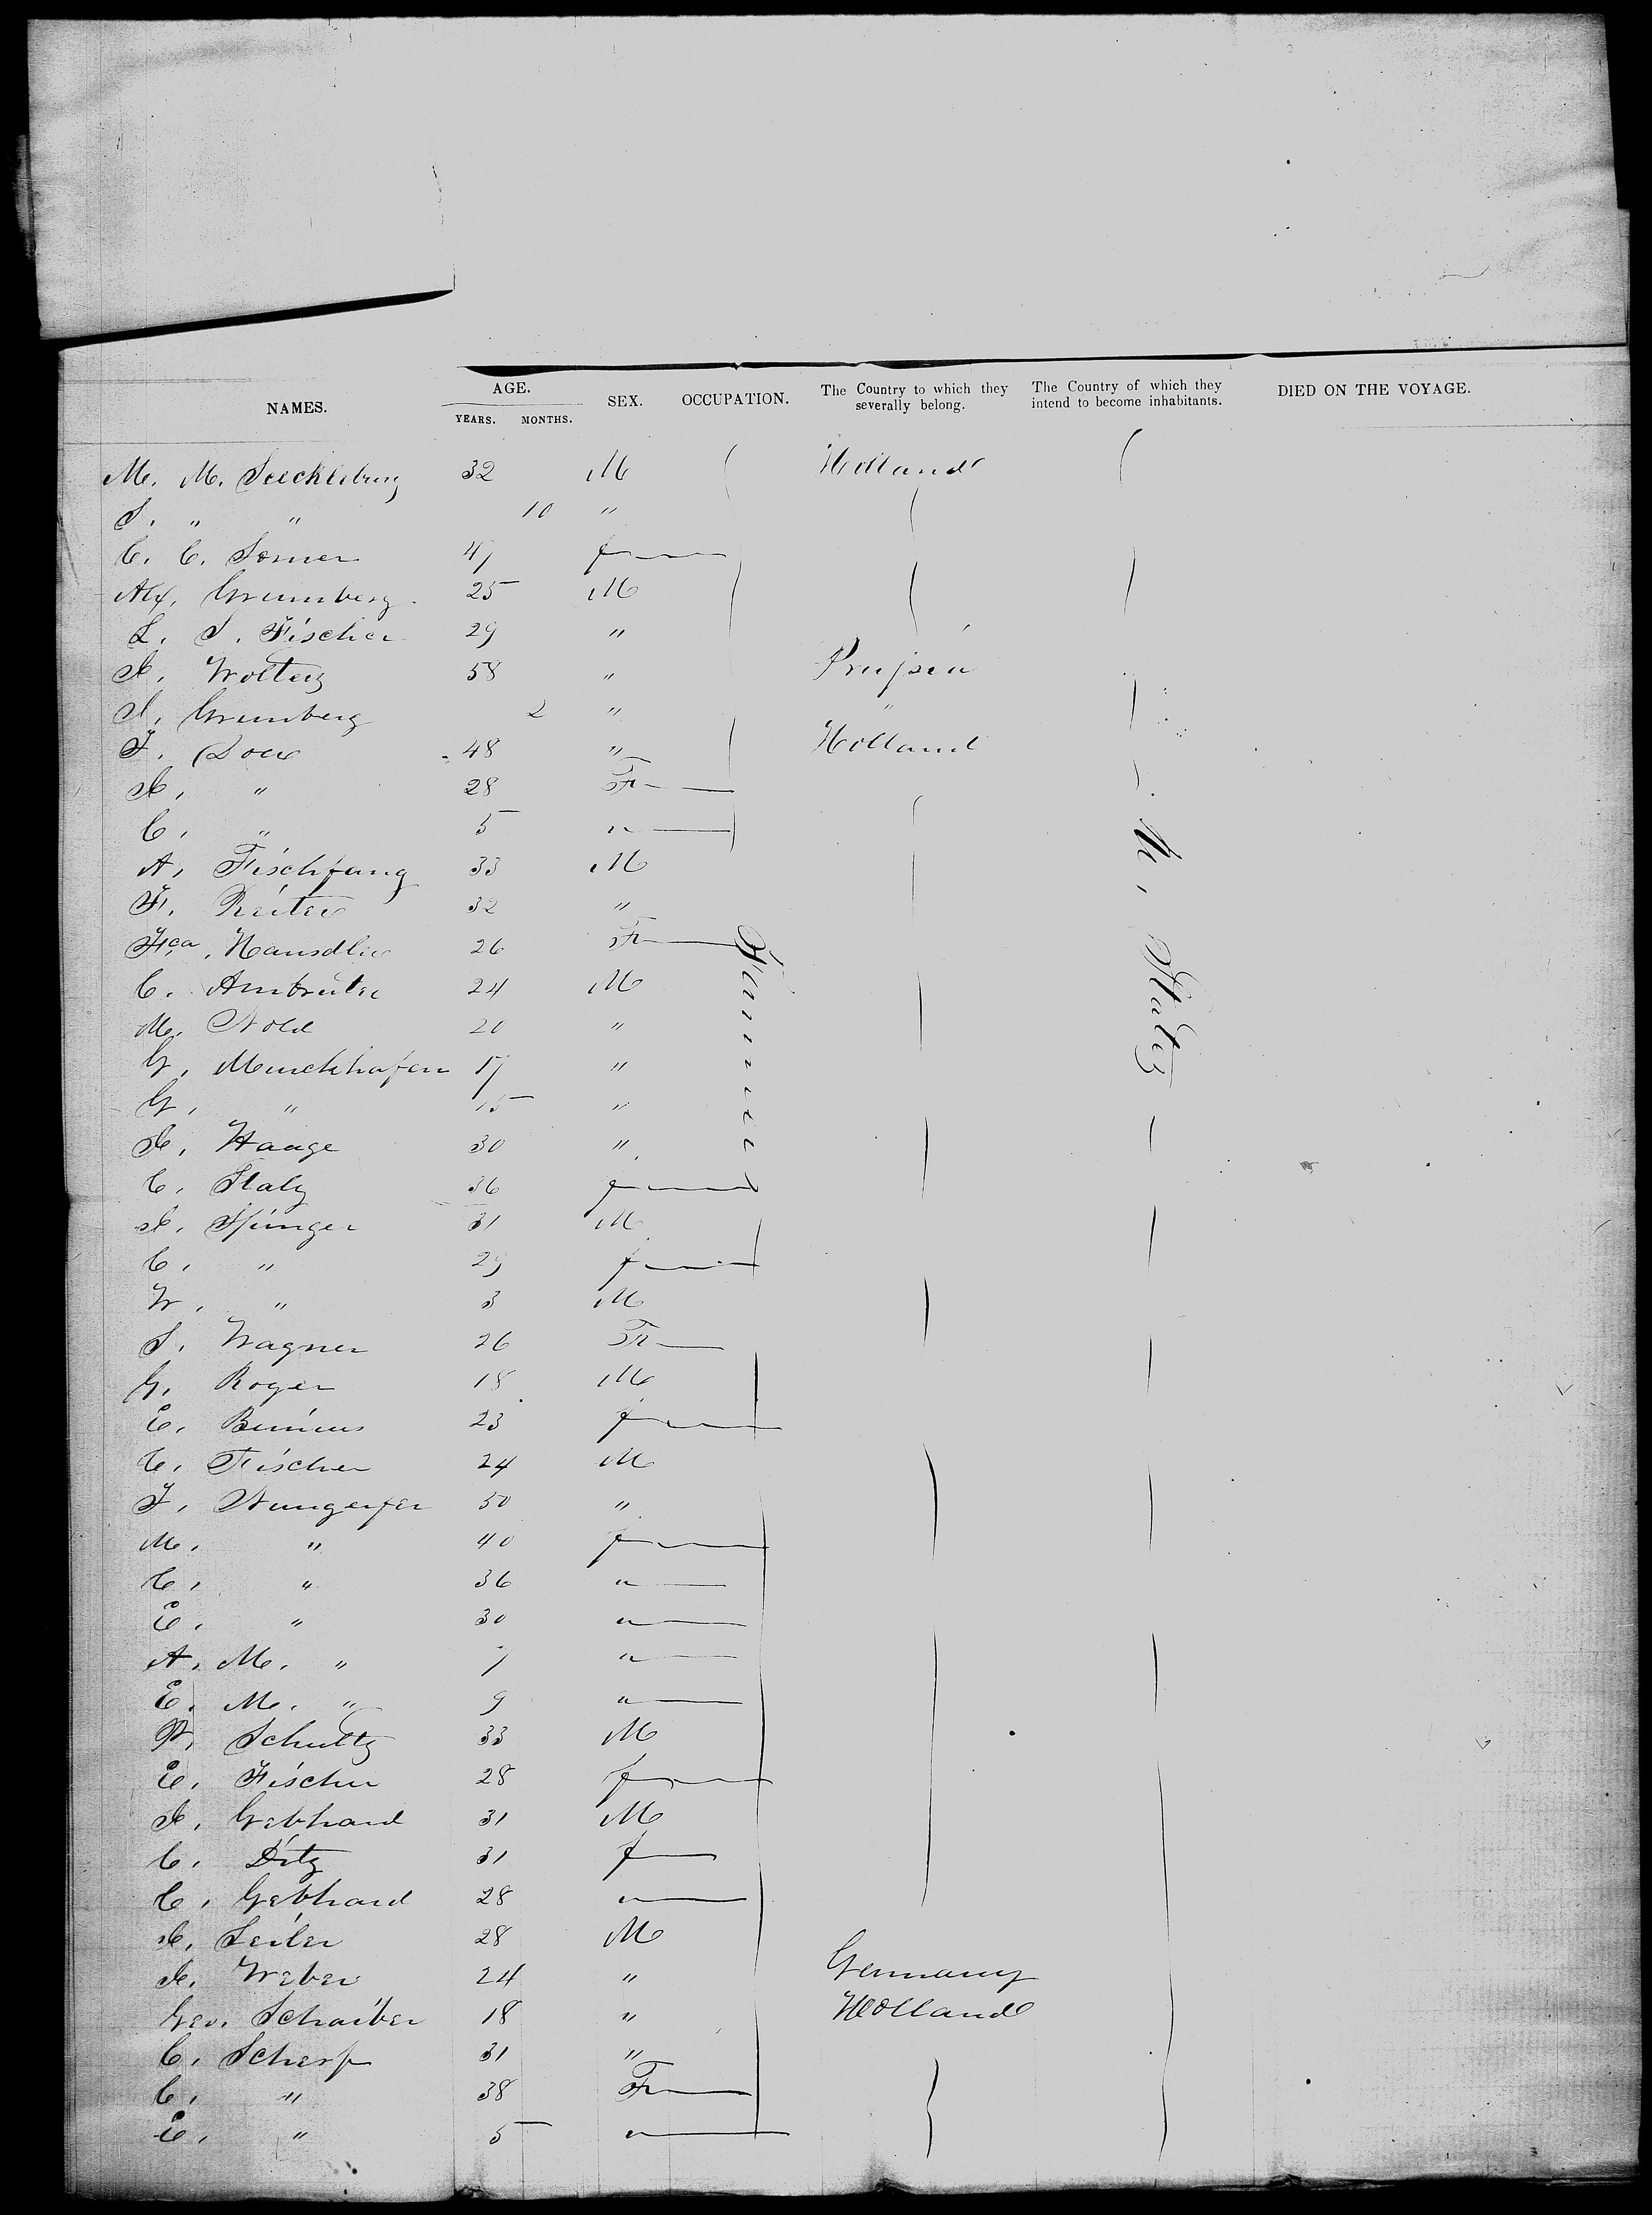 NAMES. AGE. YEARS. MONTHS. SEX. OCCUPATION. The Country to which they severally belong. The Country of which they intend to become inhabitants. DIED ON THE VOYAGE.
M. M. 32 M Holland
S. " " 10 "
C. C. 47 f
Alx. Grumberg 25 M
L. S. Fischer 29 "
H. Wolterz 58 " Prussia
S. Grumberg 2 " "
F. 48 " Holland
H. " 28 F
C. " 5 "
A. Fischfang 33 M
F. Reiter 32 "
Fca. 26 F
C. 24 M
M. Nold 20 "
G. Menckhafen 17 "
G. " 15 "
H. Haage 30 "
C. Staly 36 f
H. 31 M
C. " 29 f
W. " 3 M
S. Wagner 26 F
G. Roger 18 M
E. 23 f
C. Fischer 24 M
F. Nungerfer 50 "
M. " 40 f
C. " 36 "
E. " 30 "
A. M. " 7 "
E. M. " 9 "
P. Schultz 33 M
E. Fischer 28 f
H. Gebhard 31 M
C. Ditz 31 f
C. Gebhard 28 "
H. Seiler 28 M
H. Weber 24 " Germany
Geo. Schaiber 18 " Holland
C. Scherf 31 "
C. " 38 F
E. " 5 "
Farmers
U. States